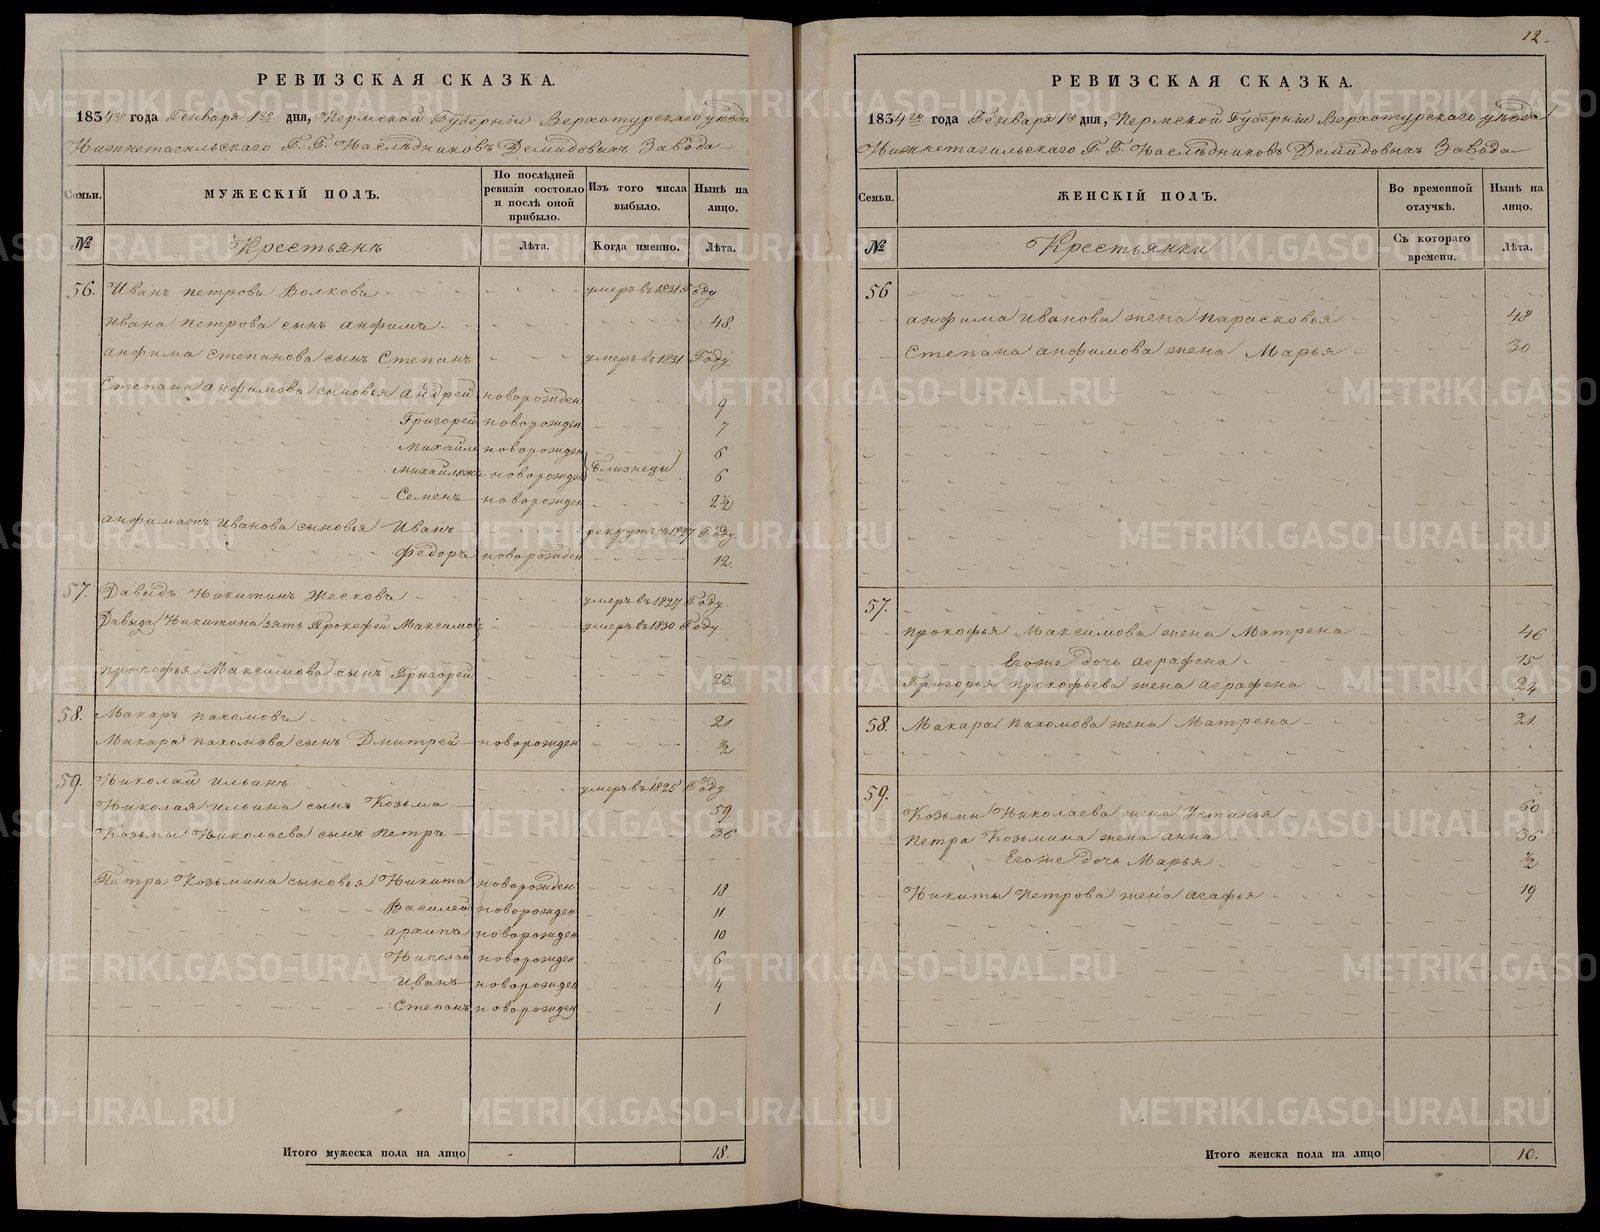 12.
РЕВИЗСКАЯ СКАЗКА.
1834го года Генваря 1го дня, Пермской Губернiи Верхотурскаго уѣзда
Нижнетагильскаго Г. Г. Наслѣдниковъ Демидовыхъ Завода
Семьи. МУЖЕСКIЙ ПОЛЪ. По послѣдней ревизiи состояло и послѣ оной прибыло. Изъ того числа выбыло. Нынѣ на лицо.
№ Крестьянѣ Лѣта. Когда именно. Лѣта.
56. Иванъ петровъ Волковъ умеръ въ 1831 Году
Ивана петрова сынъ анфимъ 48
анфима степанова сынъ Степанъ умеръ въ 1831 Году
Степана анфимова сыновья андрей новорожден 9
Григорей новорожден 7
михайли новорожден 6
михайложъ новорожден близнецы 6
Семенъ новорожден 2½
анфимажъ Иванова сыновья Иванъ рекрутъ съ 1827 Году
федоръ новорожден 12.
57. Давыдъ Никитинъ Жесковъ умеръ въ 1827 Году
Давыда Никитина зять Прокофей Максимовъ умеръ въ 1830 Году
прокофья Максимова сынъ Григорей 23
58. Макаръ пахомовъ 21
Макара пахомова сынъ Дмитрей новорожден ½
59. Николай ильинъ умеръ въ 1825 Году
Николая ильина сынъ Козьма 59
Козьмы Николаева сынъ петръ 36
Петра Козьмина сыновья Никита новорожден 18
Василей новорожден 11
архипъ новорожден 10
Николай новорожден 6
иванъ новорожден 4
Степанъ новорожден 1
Итого мужеска пола на лицо 18.
РЕВИЗСКАЯ СКАЗКА.
1834го года Генваря 1го дня, Пермской Губернiи Верхотурскаго уѣзда
Нижнетагильскаго Г. Г. Наслѣдниковъ Демидовыхъ Завода
Семьи. ЖЕНСКIЙ ПОЛЪ. Во временной отлучкѣ. Нынѣ на лицо.
№ Крестьянки Съ котораго времени. Лѣта.
56
анфима Иванова жена парасковья 48
Степана анфимова жена Марья 30
57.
прокофья Максимова жена Матрена 46
Егоже дочь аграфена 15
Григорья прокофьева жена аграфена 24
58. Макара пахомова жена Матрена 21
59.
Козьмы Николаева жена Устинья 60
петра Козьмина жена анна 36
Егоже дочь Марья ½
Никиты петрова жена агафья 19
Итого женска пола на лицо 10.
METRIKI.GASO-URAL.RU